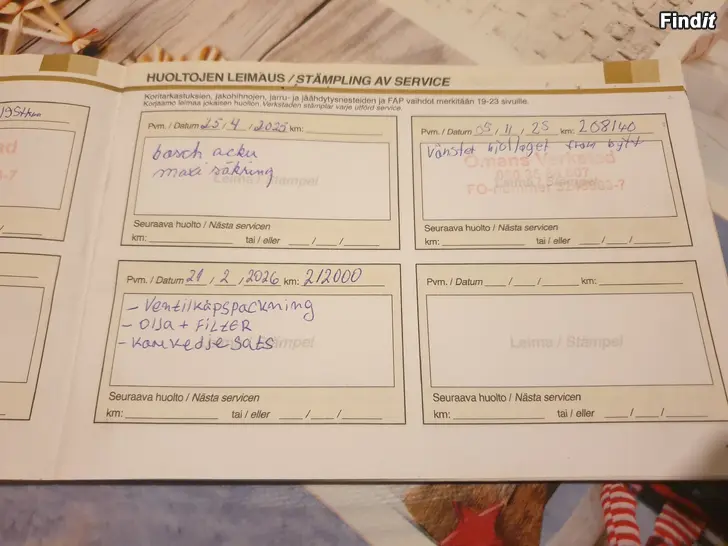 Findit
HUOLTOJEN LEIMAUS / STÄMPLING AV SERVICE
Koritarkastuksien, jakohihnojen, jarru- ja jäähdytysnesteiden ja FAP vaihdot merkitään 19-23 sivuille.
Korjaamo leimaa jokaisen huollon. Verkstaden stämplar varje utförd service.
Pvm. / Datum 25, 4, 2025 km:
bosch acku
maxi säkring
Leima / Stämpel
Seuraava huolto / Nästa servicen
km: tai / eller / /
Pvm. / Datum 05, 11, 25 km: 208140
vänster hjullaget fram bytt
Omans Verkstad
Leima / Stämpel
Seuraava huolto / Nästa servicen
km: tai / eller / /
Pvm. / Datum 21, 2, 2026 km: 212000
- Ventilkåpspackning
- Olja + FiLTER
- Kamkedjesats
Leima / Stämpel
Seuraava huolto / Nästa servicen
km: tai / eller / /
Pvm. / Datum / / km:
Leima / Stämpel
Seuraava huolto / Nästa servicen
km: tai / eller / /